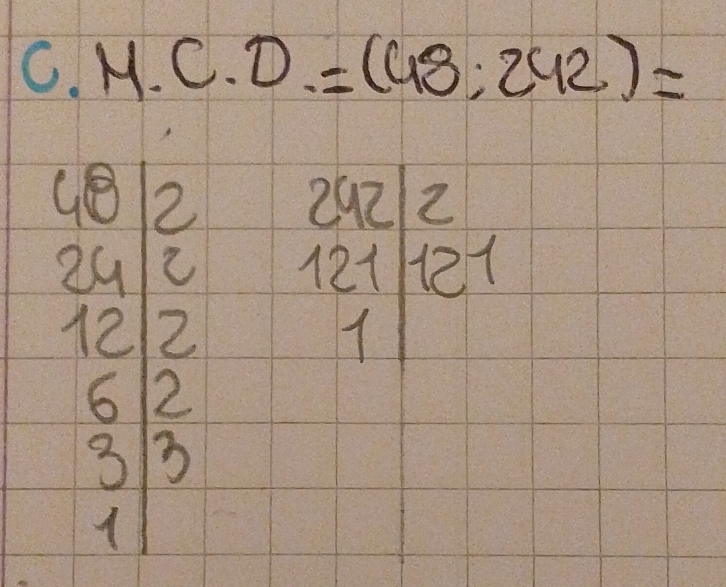 C. M.C.D.=(48;242)=
48|2 242|2
24|2 121|121
12|2 1|
6|2
3|3
1|